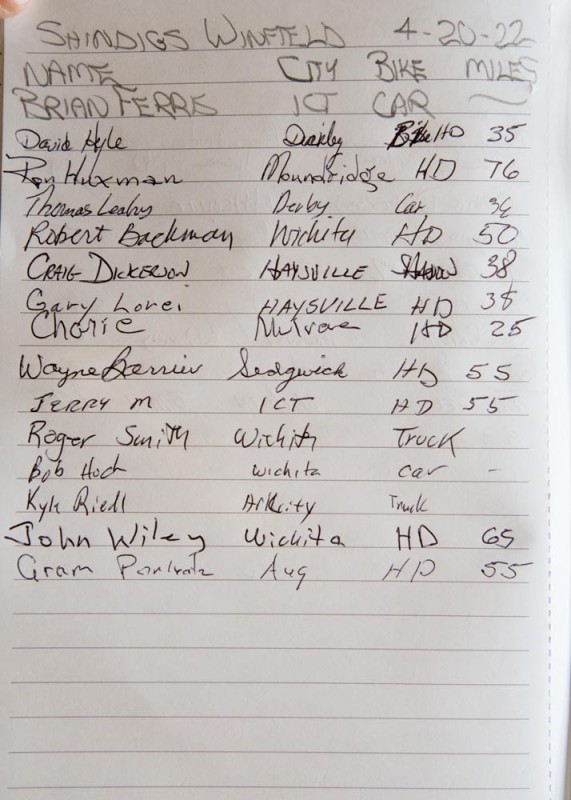 SHINDIGS WINFIELD 4-20-22
NAME CITY BIKE MILES
BRIAN FERRIS ICT CAR —
David Hyle HD 35
Ron Huxman Moundridge HD 76
Thomas Leahy Derby Car
Robert Backman Wichita HD 50
CRAIG DICKERSON HAYSVILLE 38
Gary Lorei HAYSVILLE HD 38
Charie Mulvane HD 25
Wayne Berrier Sedgwick HD 55
JERRY M ICT HD 55
Roger Smith Wichita Truck
Bob Hoch wichita car -
Kyle Riedl Ark city Truck
John Wiley Wichita HD 65
Gram Aug HD 55